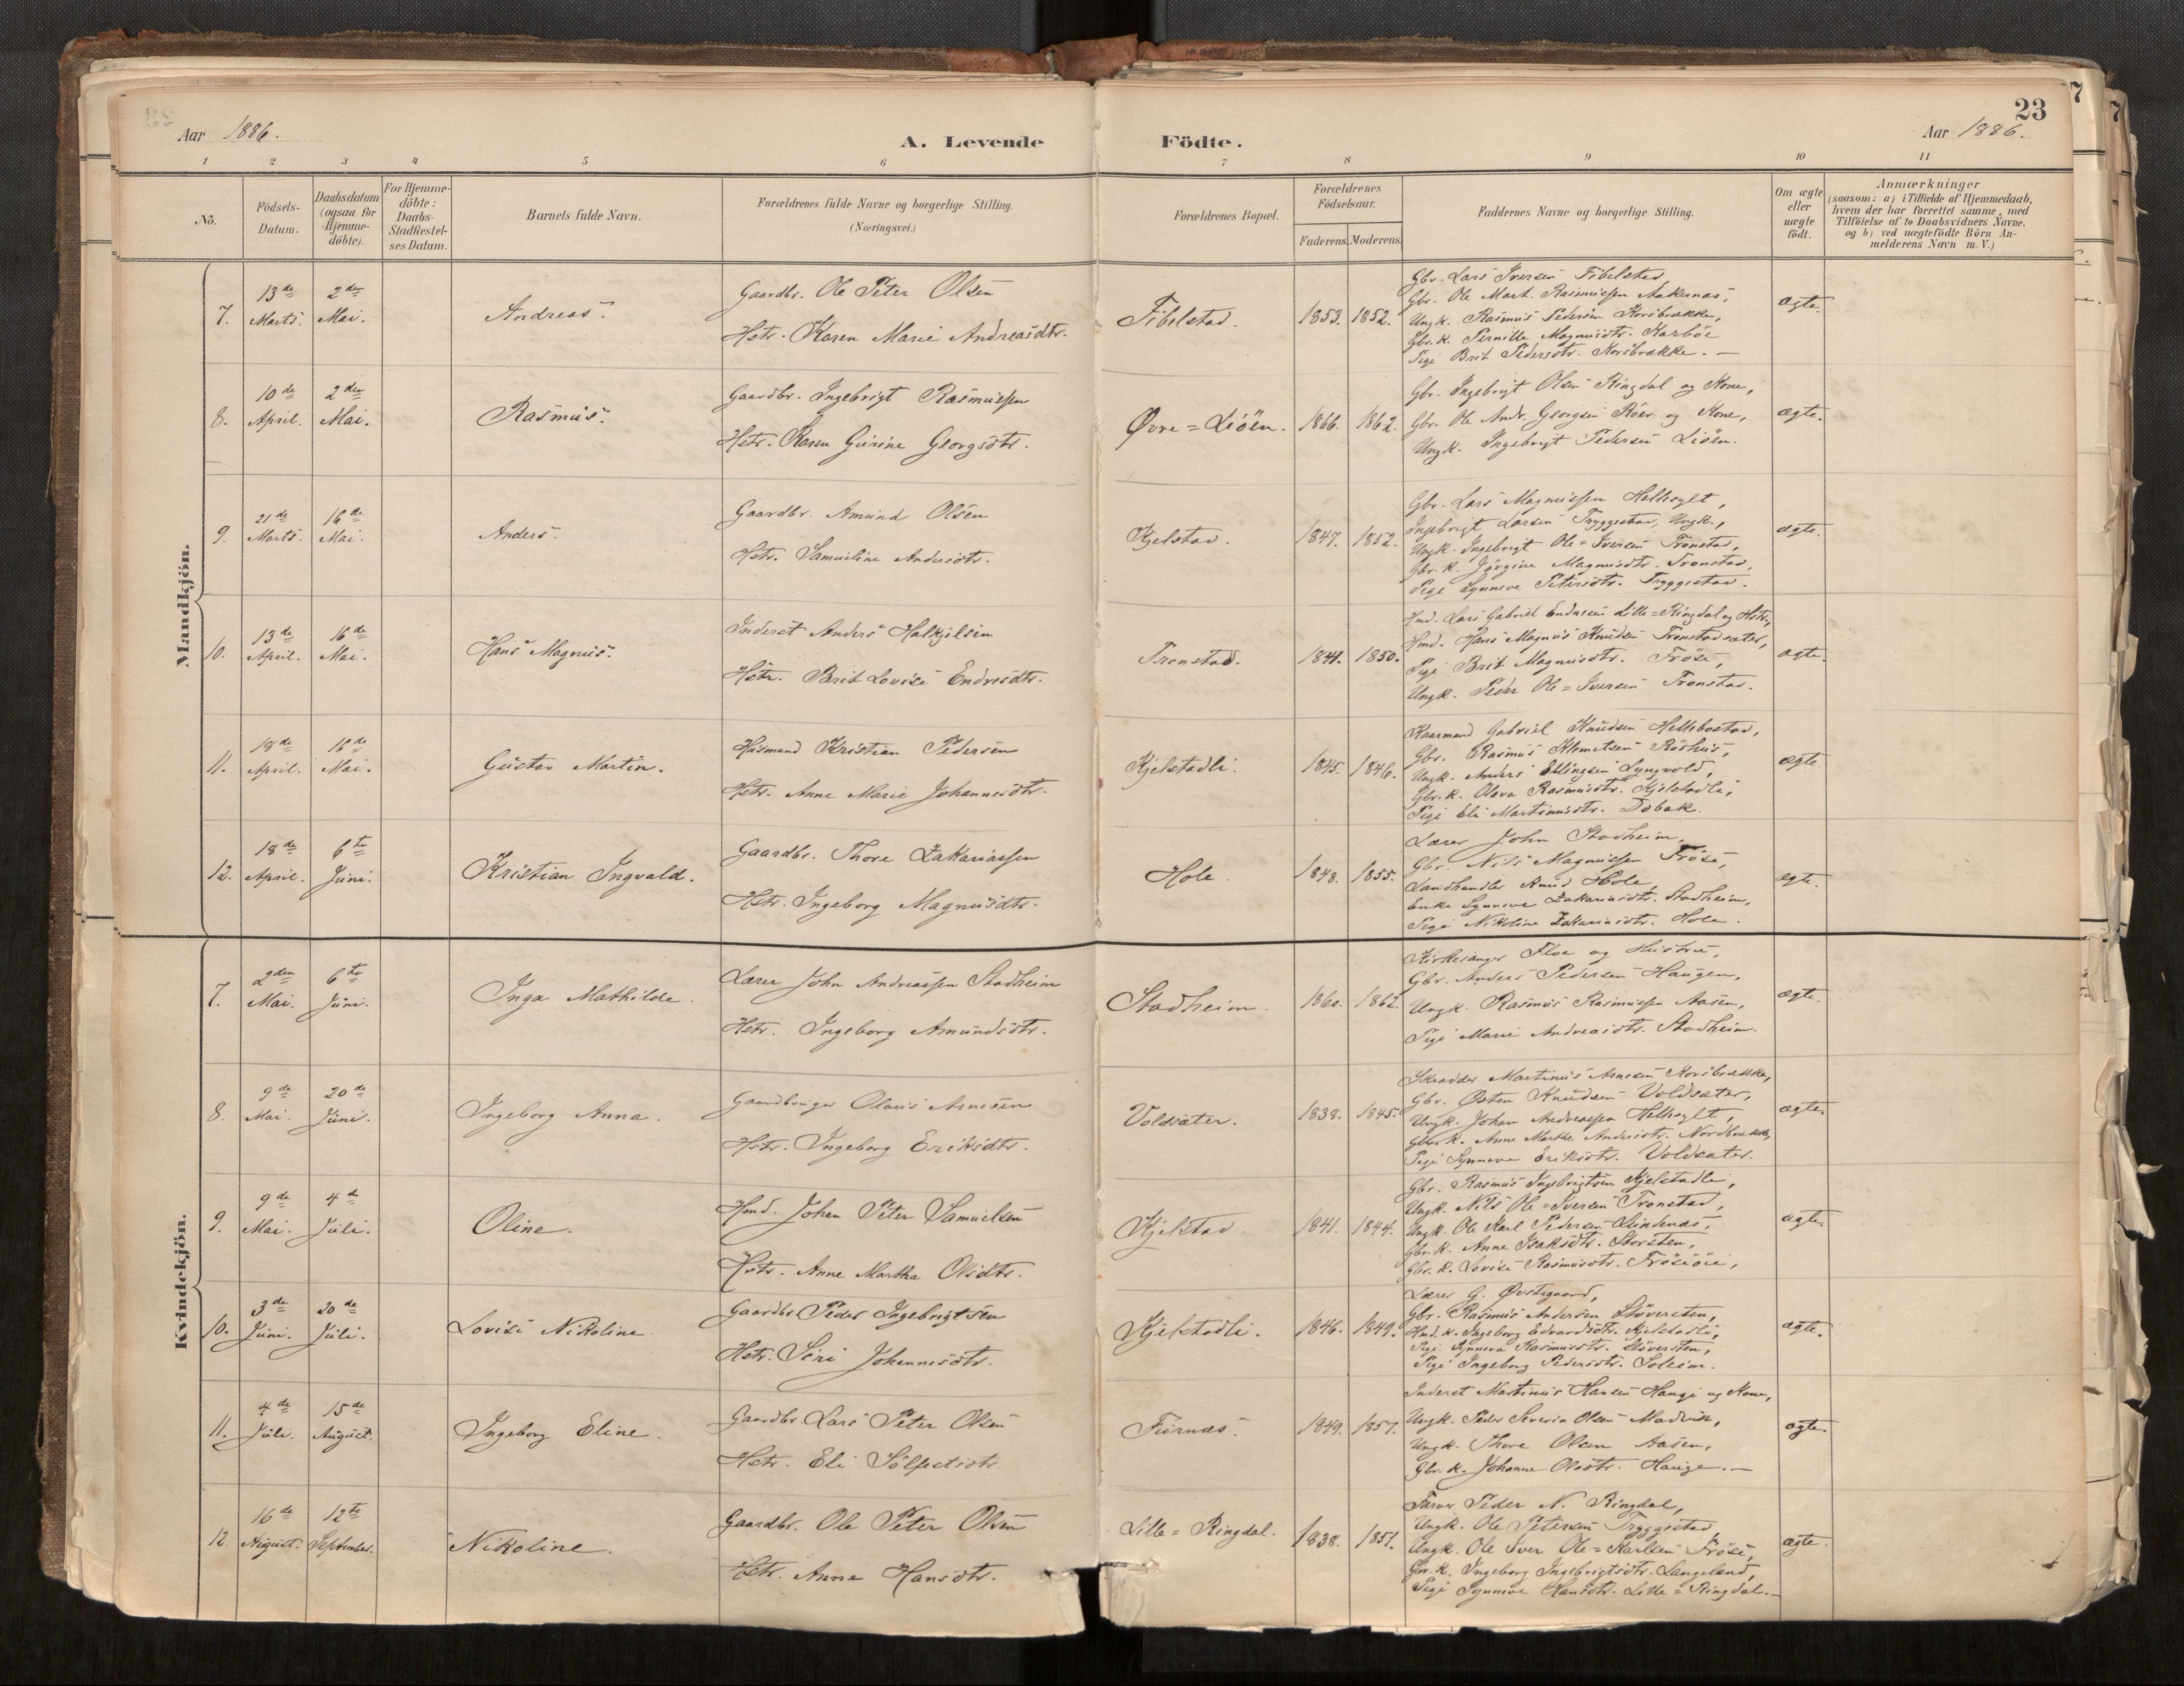 23
Aar 1886.
A. Levende Födte.
Aar 1886.
1 2 3 4 5 6 7 8 9 10 11
Nö.
Födsels-Datum.
Daabsdatum (ogsaa for Hjemme-döbte).
For Hjemme-döbte: Daabs-Stadfæstel-ses Datum.
Barnets fulde Navn.
Forældrenes fulde Navne og borgerlige Stilling.
(Næringsvei.)
Forældrenes Bopæl.
Forældrenes Födselsaar.
Faderens. Moderens.
Faddernes Navne og borgerlige Stilling.
Om ægte eller uægte födt.
Anmærkninger
(saasom: a) i Tilfælde af Hjemmedaab,
hvem der har forrettet samme, med
Tilföielse af to Daabsvidners Navne.
og b) ved uægtefödte Börn An-
melderens Navn m. V.)
Mandkjön.
7. 13de Marts. 2den Mai. Andreas.
Gaardbr. Ole Peter Olsen
Hstr. Karen Marie Andreasdtr.
Fibelstad. 1853. 1852.
Gbr. Lars Iversen Fibelstad,
Gbr. Ole Mart. Rasmussen Aakernæs,
Ungk. Rasmus Pedersen Korsbrække,
Gbr. K. Pernille Magnusdtr. Karbös
Pige Brit Pedersdtr. Korsbrække. —
ægte.
8. 10de April. 2den Mai. Rasmus.
Gaardbr. Ingebrigt Rasmussen
Hstr. Karen Gurine Georgsdtr.
Øvre=Liöen. 1866. 1862.
Gbr. Ingebrigt Olsen Ringdal og Kone,
Gbr. Ole Andr. Georgsen Röer og Kone,
Ungk. Ingebrigt Pedersen Liöen.
ægte.
9. 21de Marts. 16de Mai. Anders.
Gaardbr. Amund Olsen
Hstr. Samueline Andersdtr.
Kjelstad. 1847. 1852.
Gbr. Lars Magnussen Hellesylt,
Ingebrigt Larsen Tryggestad, Ungk.,
Ungk. Ingebrigt Ole=Iversen Tronstad,
Gbr. K. Jörgine Magnusdtr. Tronstad,
Pige Synneve Petersdtr. Tryggestad.
ægte.
10. 13de April. 16de Mai. Hans Magnus.
Inderst Anders Halkjelsen
Hstr. Brit Lovise Endresdtr.
Tronstad. 1841. 1850.
Hmd. Lars Gabriel Endresen Lille=Ringdal og Hstr.,
Hmd. Hans Magnus Knudsen Tronstadsæter,
Pige Brit Magnusdtr. Fröse,
Ungk. Peder Ole=Iversen Tronstad.
ægte.
11. 18de April. 16de Mai. Gustav Martin.
Husmand Kristian Pedersen
Hstr. Anne Marie Johannesdtr.
Kjelstadli. 1845. 1846.
Kaarmand Gabriel Knudsen Hellebostad,
Gbr. Rasmus Klemetsen Röshus,
Ungk. Anders Ellingsen Lyngvold,
Gbr. K. Olava Rasmusdtr. Kjelstadli,
Pige Eli Martinusdtr. Dobak.
ægte
12. 18de April. 6te Juni. Kristian Ingvald.
Gaardbr. Thore Zakariassen
Hstr. Ingeborg Magnusdtr.
Hole. 1848. 1855.
Lærer John Stadheim,
Gbr. Nils Magnussen Fröse,
Landhandler Knud Hole,
Enke Synneve Zakariasdtr. Stadheim,
Pige Nikoline Zakariasdtr. Hole.
ægte.
Kvindekjön.
7. 2den Mai. 6te Juni. Inga Mathilde.
Lærer John Andreassen Stadheim
Hstr. Ingeborg Amundsdtr.
Stadheim. 1860. 1862.
Kirkesanger Floe og Hustru,
Gbr. Anders Pedersen Haugen,
Ungk. Rasmus Rasmussen Aasen,
Pige Marie Andreasdtr. Stadheim.
ægte.
8. 9de Mai. 20de Juni. Ingeborg Anna.
Gaardbruger Olaus Arnesen
Hstr. Ingeborg Eriksdtr.
Voldsæter. 1838. 1845.
Skrædder Martinus Arnesen Korsbrække,
Gbr. Østen Knudsen Voldsæter,
Ungk. Johan Andreassen Hellesylt,
Gbr. K. Anne Marthe Andersdtr. Nordbrække,
Pige Synneve Eriksdtr. Voldsæter.
ægte.
9. 9de Mai. 4de Juli. Oline.
Hmd. Johan Peter Samuelsen
Hstr. Anne Martha Olsdtr.
Kjelstad 1841. 1844.
Gbr. Rasmus Ingebrigtsen Kjelstadli,
Ungk. Nils Ole=Iversen Tronstad,
Ungk. Ole Karl Pedersen Lundenæs,
Gbr. K. Anne Isaksdtr. Storsten,
Gbr. K. Lovise Rasmusdtr. Frösöie,
ægte.
10. 3de Juni. 20de Juli. Lovise Nikoline
Gaardbr. Peder Ingebrigtsen
Hstr. Siri Johannesdtr.
Kjelstadli. 1846. 1849.
Lærer G. Øvstegaard,
Gbr. Rasmus Andersen Stöversten,
Hmd. K. Ingeborg Edvardsdtr. Kjelstadli,
Pige Synneva Rasmusdtr. Stöversten,
Pige Ingeborg Pedersdtr. Soleim.
ægte.
11. 4de Juli. 15de August. Ingeborg Eline.
Gaardbr. Lars Peter Olsen
Hstr. Eli Sölfestsdtr
Furnæs. 1849. 1857.
Inderst Martinus Hansen Hauge og Kone,
Ungk. Peder Severin Olsen
Ungk. Thore Olsen Aasen,
Gbr. K. Johanne Olsdtr. Hauge. —
ægte.
12. 16de August. 12te September. Nikoline.
Gaardbr. Ole Peter Olsen
Hstr. Anne Hansdtr.
Lille=Ringdal. 1838. 1851.
Farver Peder N. Ringdal,
Ungk. Ole Petersen Tryggestad
Ungk. Ole Iver Ole=Karlsen Fröse,
Gbr. K. Ingeborg Ingebrigtsdtr. Langeland,
Pige Synneve Hansdtr. Lille=Ringdal. —
ægte.